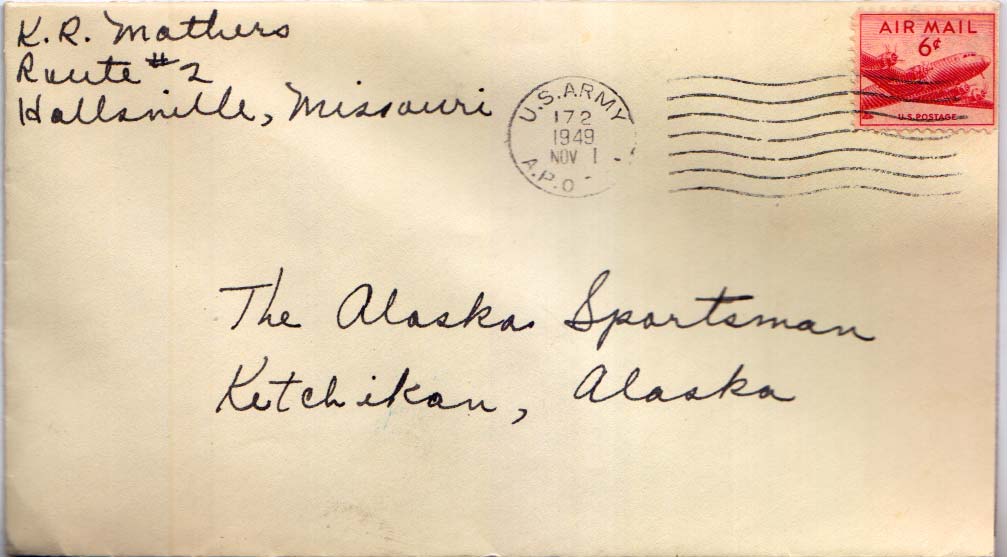 K.R. Mathers
Route #2
Hallsville, Missouri
U.S. ARMY
172
1949
NOV 1
A.P.O.
AIR MAIL
6¢
U.S. POSTAGE
The Alaska Sportsman
Ketchikan, Alaska